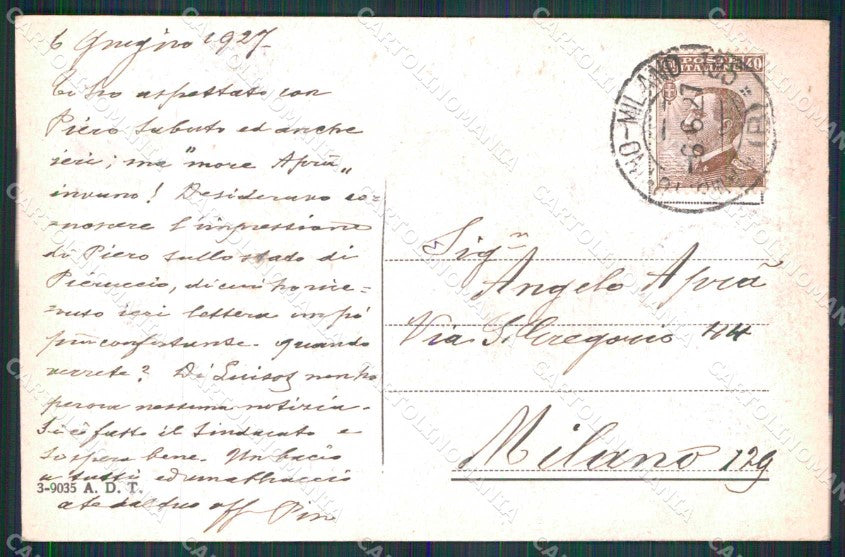 6 Giugno 1927
Ti ho aspettato con
Piero sabato ed anche
ieri; ma "more Aprà"
invano! Desideravo co=
noscere l'impressione
di Piero sullo stado di
Pieruccio, di cui ho rice=
vuto ieri lettera un pò
più confortante. quando
verrete? Di Luisot non ho
perora nessuna notizia.
Si è fatto il sindacato e
bene. Un bacio
a tutti ed un abbraccio
a te dal tuo aff Pin
3-9035 A. D. T.
POSTE ITALIANE 40
MILANO
6.6.27
Sigⁿ
Angelo Aprà
Via S. Gregorio 44
Milano 129
CARTOLINOMANIA